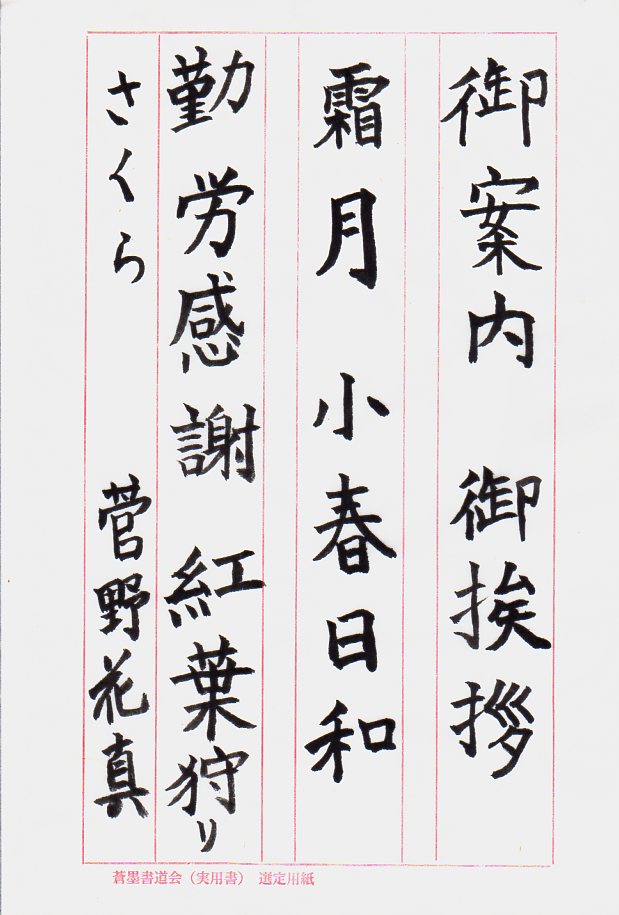 御案内 御挨拶
霜月 小春日和
勤労感謝 紅葉狩り
さくら 菅野花真
蒼墨書道会（実用書） 選定用紙